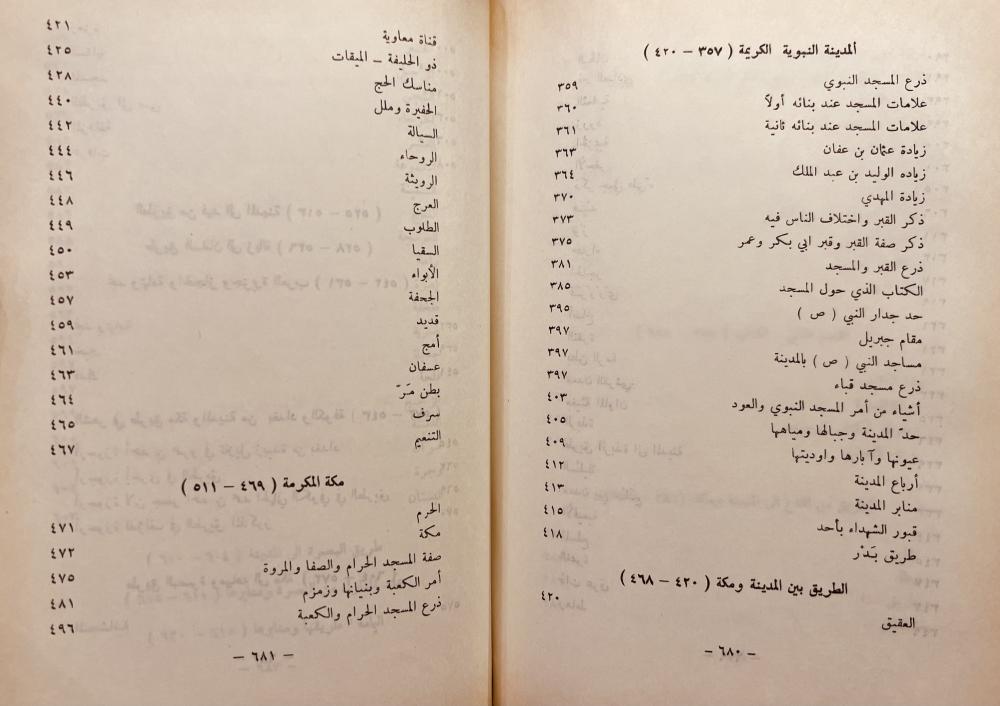 ألمدينة النبوية الكريمة ( ٣٥٧ – ٤٢٠ )
ذرع المسجد النبوي ٣٥٩
علامات المسجد عند بنائه أولاً ٣٦٠
علامات المسجد عند بنائه ثانية ٣٦١
زيادة عثمان بن عفان ٣٦٣
زياده الوليد بن عبد الملك ٣٦٤
زيادة المهدي ٣٧٠
ذكر القبر واختلاف الناس فيه ٣٧٣
ذكر صفة القبر وقبر ابي بكر وعمر ٣٧٥
ذرع القبر والمسجد ٣٨١
الكتاب الذي حول المسجد ٣٨٥
حد جدار النبي ( ص ) ٣٩٥
مقام جبريل ٣٩٧
مساجد النبي ( ص ) بالمدينة ٣٩٧
ذرع مسجد قباء ٣٩٧
أشياء من أمر المسجد النبوي والعود ٤٠٣
حدّ المدينة وجبالها ومياهها ٤٠٥
عيونها وآبارها واوديتها ٤٠٩
أرباع المدينة ٤١٢
منابر المدينة ٤١٣
قبور الشهداء بأحد ٤١٥
طريق بَدْر ٤١٨
الطريق بين المدينة ومكة ( ٤٢٠ – ٤٦٨ )
العقيق ٤٢٠
– ٦٨٠ –
قناة معاوية ٤٢١
ذو الحليفة – الميقات ٤٢٥
مناسك الحج ٤٢٨
الحفيرة وملل ٤٤٠
السيالة ٤٤٢
الروحاء ٤٤٤
الرويثة ٤٤٦
العرج ٤٤٨
الطلوب ٤٤٩
السقيا ٤٥٠
الأبواء ٤٥٣
الجحفة ٤٥٧
قديد ٤٥٩
أمج ٤٦١
عسفان ٤٦٣
بطن مَرّ ٤٦٤
سرف ٤٦٥
التنعيم ٤٦٧
مكة المكرمة ( ٤٦٩ – ٥١١ )
الحرم ٤٧١
مكة ٤٧٢
صفة المسجد الحرام والصفا والمروة ٤٧٥
أمر الكعبة وبنيانها وزمزم ٤٨١
ذرع المسجد الحرام والكعبة ٤٩٦
– ٦٨١ –